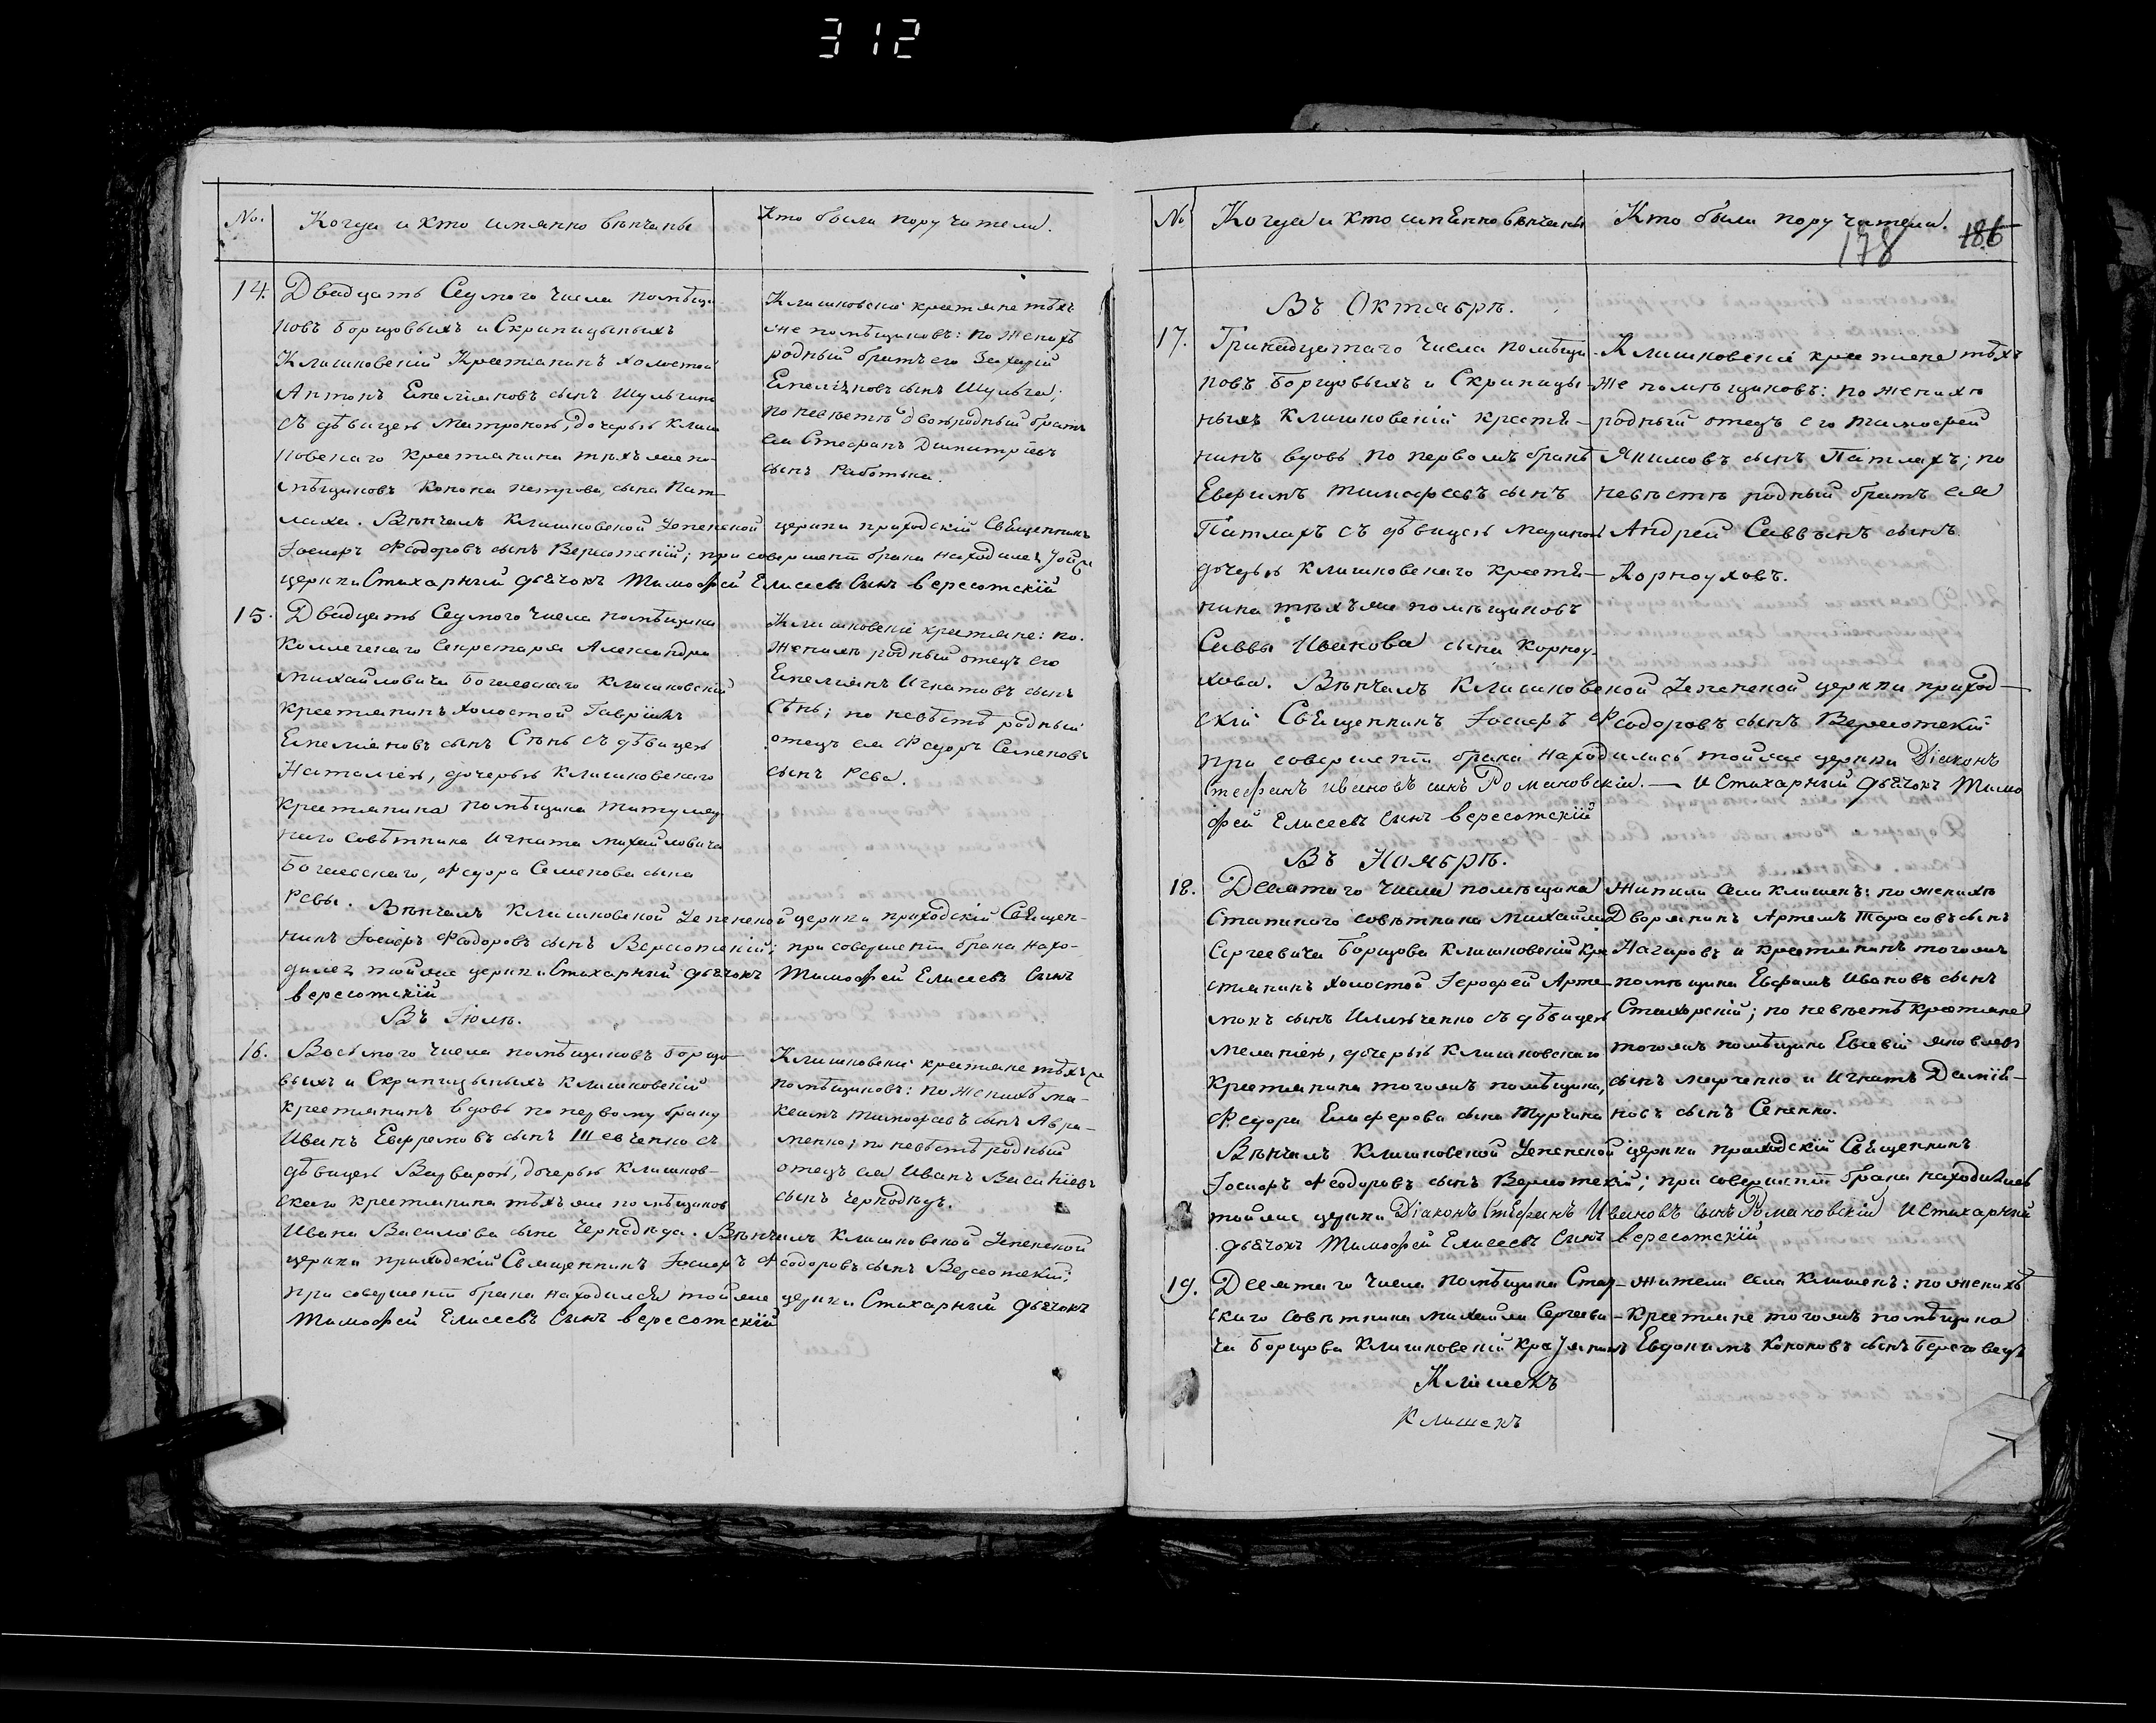 312
No. Когда и кто имянно вѣнчаны
Кто были поручители.
14. Двадцать Седмого числа помѣщи
ковъ Борщовыхъ и Скрипицыныхъ
Клишковскій Крестянинъ холостой
Антонъ Емеліяновъ сынъ Шульгинъ
съ дѣвицею Матроною, дочерью Клиш
ковскаго крестянина тѣхъ же по-
мѣщиковъ Конона Петрова сына Пат-
лаха. Вѣнчалъ Клишковской Успенской церкви приходскій Священникъ
Іосифъ Феодоровъ сынъ Вересотскій; при совершеніи брака находился той же
церкви Стихарный дьячокъ Тимофей Елисеевъ Сынъ Вересотскій
Клишковскіе крестяне тѣхъ
же помѣщиковъ: по женихѣ
родный братъ его Захарій
Емеліяновъ сынъ Шульга;
по невѣстѣ двоюродный братъ
ея Стефанъ Димитріевъ
сынъ Работька.
15. Двадцать Седмого числа помѣщика
Коллегскаго Секретаря Александра
Михайловича Богаевскаго Клишковскій
крестянинъ холостой Гавріилъ
Емеліяновъ сынъ Сѣнь съ дѣвицею
Наталіею, дочерью Клишковскаго
крестянина помѣщика титуляр
наго совѣтника Игната Михайловича
Богаевскаго, Федора Семенова сына
Ревы. Вѣнчалъ Клишковской Успенской церкви приходскій Священ-
никъ Іосифъ Феодоровъ сынъ Вересотскій; при совершеніи брака нахо-
дился той же церкви Стихарный дьячокъ Тимофей Елисеевъ Сынъ
Вересотскій
Клишковскіе крестяне: по
женихѣ родный отецъ его
Емеліянъ Игнатовъ сынъ
Сѣнь; по невѣстѣ родный
отецъ ея Федоръ Семеновъ
сынъ Рева.
Въ Іюлѣ.
16. Восьмого числа помѣщиковъ Борщо
выхъ и Скрипицыныхъ Клишковскій
крестянинъ вдовъ по первому браку
Иванъ Евфремовъ сынъ Шевченко съ
дѣвицею Варварою, дочерью Клишков-
скаго крестянина тѣхъ же помѣщиковъ
Ивана Василіева сына Чернодѣда. Вѣнчалъ Клишковской Успенской
церкви приходскій Священникъ Іосифъ Феодоровъ сынъ Вересотскій;
при совершеніи брака находился той же церкви Стихарный дьячокъ
Тимофей Елисеевъ Сынъ Вересотскій
Клишковскіе крестяне тѣхъ же
помѣщиковъ: по женихѣ Ма-
ксимъ Тимофеевъ сынъ Авра-
менко; по невѣстѣ родный
отецъ ея Иванъ Василіевъ
сынъ Чернодѣдъ.
№ Когда и кто имянно вѣнчаны
Кто были поручители.
178 186
Въ Октябрѣ.
17. Тринадцатаго числа помѣщи-
ковъ Борщовыхъ и Скрипицы-
ныхъ Клишковскій крестя-
нинъ вдовъ по первомъ бракѣ
Евфимъ Тимофеевъ сынъ
Патлахъ съ дѣвицею Мариною
дочерью Клишковскаго крестя-
нина тѣхъ же помѣщиковъ
Саввы Иванова сына Корноу-
хова. Вѣнчалъ Клишковской Успенской церкви приход-
скій Священникъ Іосифъ Феодоровъ сынъ Вересотскій
при совершеніи брака находились той же церкви Діаконъ
Стефанъ Ивановъ сынъ Романовскій. — И Стихарный дьячокъ Тимо
фей Елисеевъ Сынъ Вересотскій
Клишковскіе крестяне тѣхъ
же помѣщиковъ: по женихѣ
родный отецъ его Тимофей
Якимовъ сынъ Патлахъ; по
невѣстѣ родный братъ ея
Андрей Саввынъ сынъ
Корноуховъ.
Въ Ноябрѣ.
18. Девятаго числа помѣщика
Статского совѣтника Михайла
Сергеевича Борщова Клишковскій кре
стянинъ холостой Іерофей Арте-
монъ сынъ Ильченко съ дѣвицею
Меланіею, дочерью Клишковскаго
крестянина того жъ помѣщика,
Федора Елиферова сына Турчина
Вѣнчалъ Клишковской Успенской церкви приходскій Священникъ
Іосифъ Феодоровъ сынъ Вересотскій; при совершеніи брака находились
той же церкви Діаконъ Стефанъ Ивановъ сынъ Романовскій И Стихарный
дьячокъ Тимофей Елисеевъ Сынъ Вересотскій
Жители села Клишекъ: по женихѣ
Дворянинъ Артемъ Тарасовъ сынъ
Назаровъ и крестянинъ того жъ
помѣщика Евфимъ Ивановъ сынъ
по невѣстѣ крестяне
того жъ помѣщика Евсевій Яковлевъ
сынъ Марченко и Игнатъ Даміа-
новъ сынъ Сененко.
19. Девятаго числа помѣщика Стат-
скаго совѣтника Михайла Сергееви-
ча Борщова Клишковскій крестянинъ
жители села Клишекъ: по женихѣ
крестяне того жъ помѣщика
Евдокимъ Кононовъ сынъ Береговецъ
Клишекъ
Клишекъ